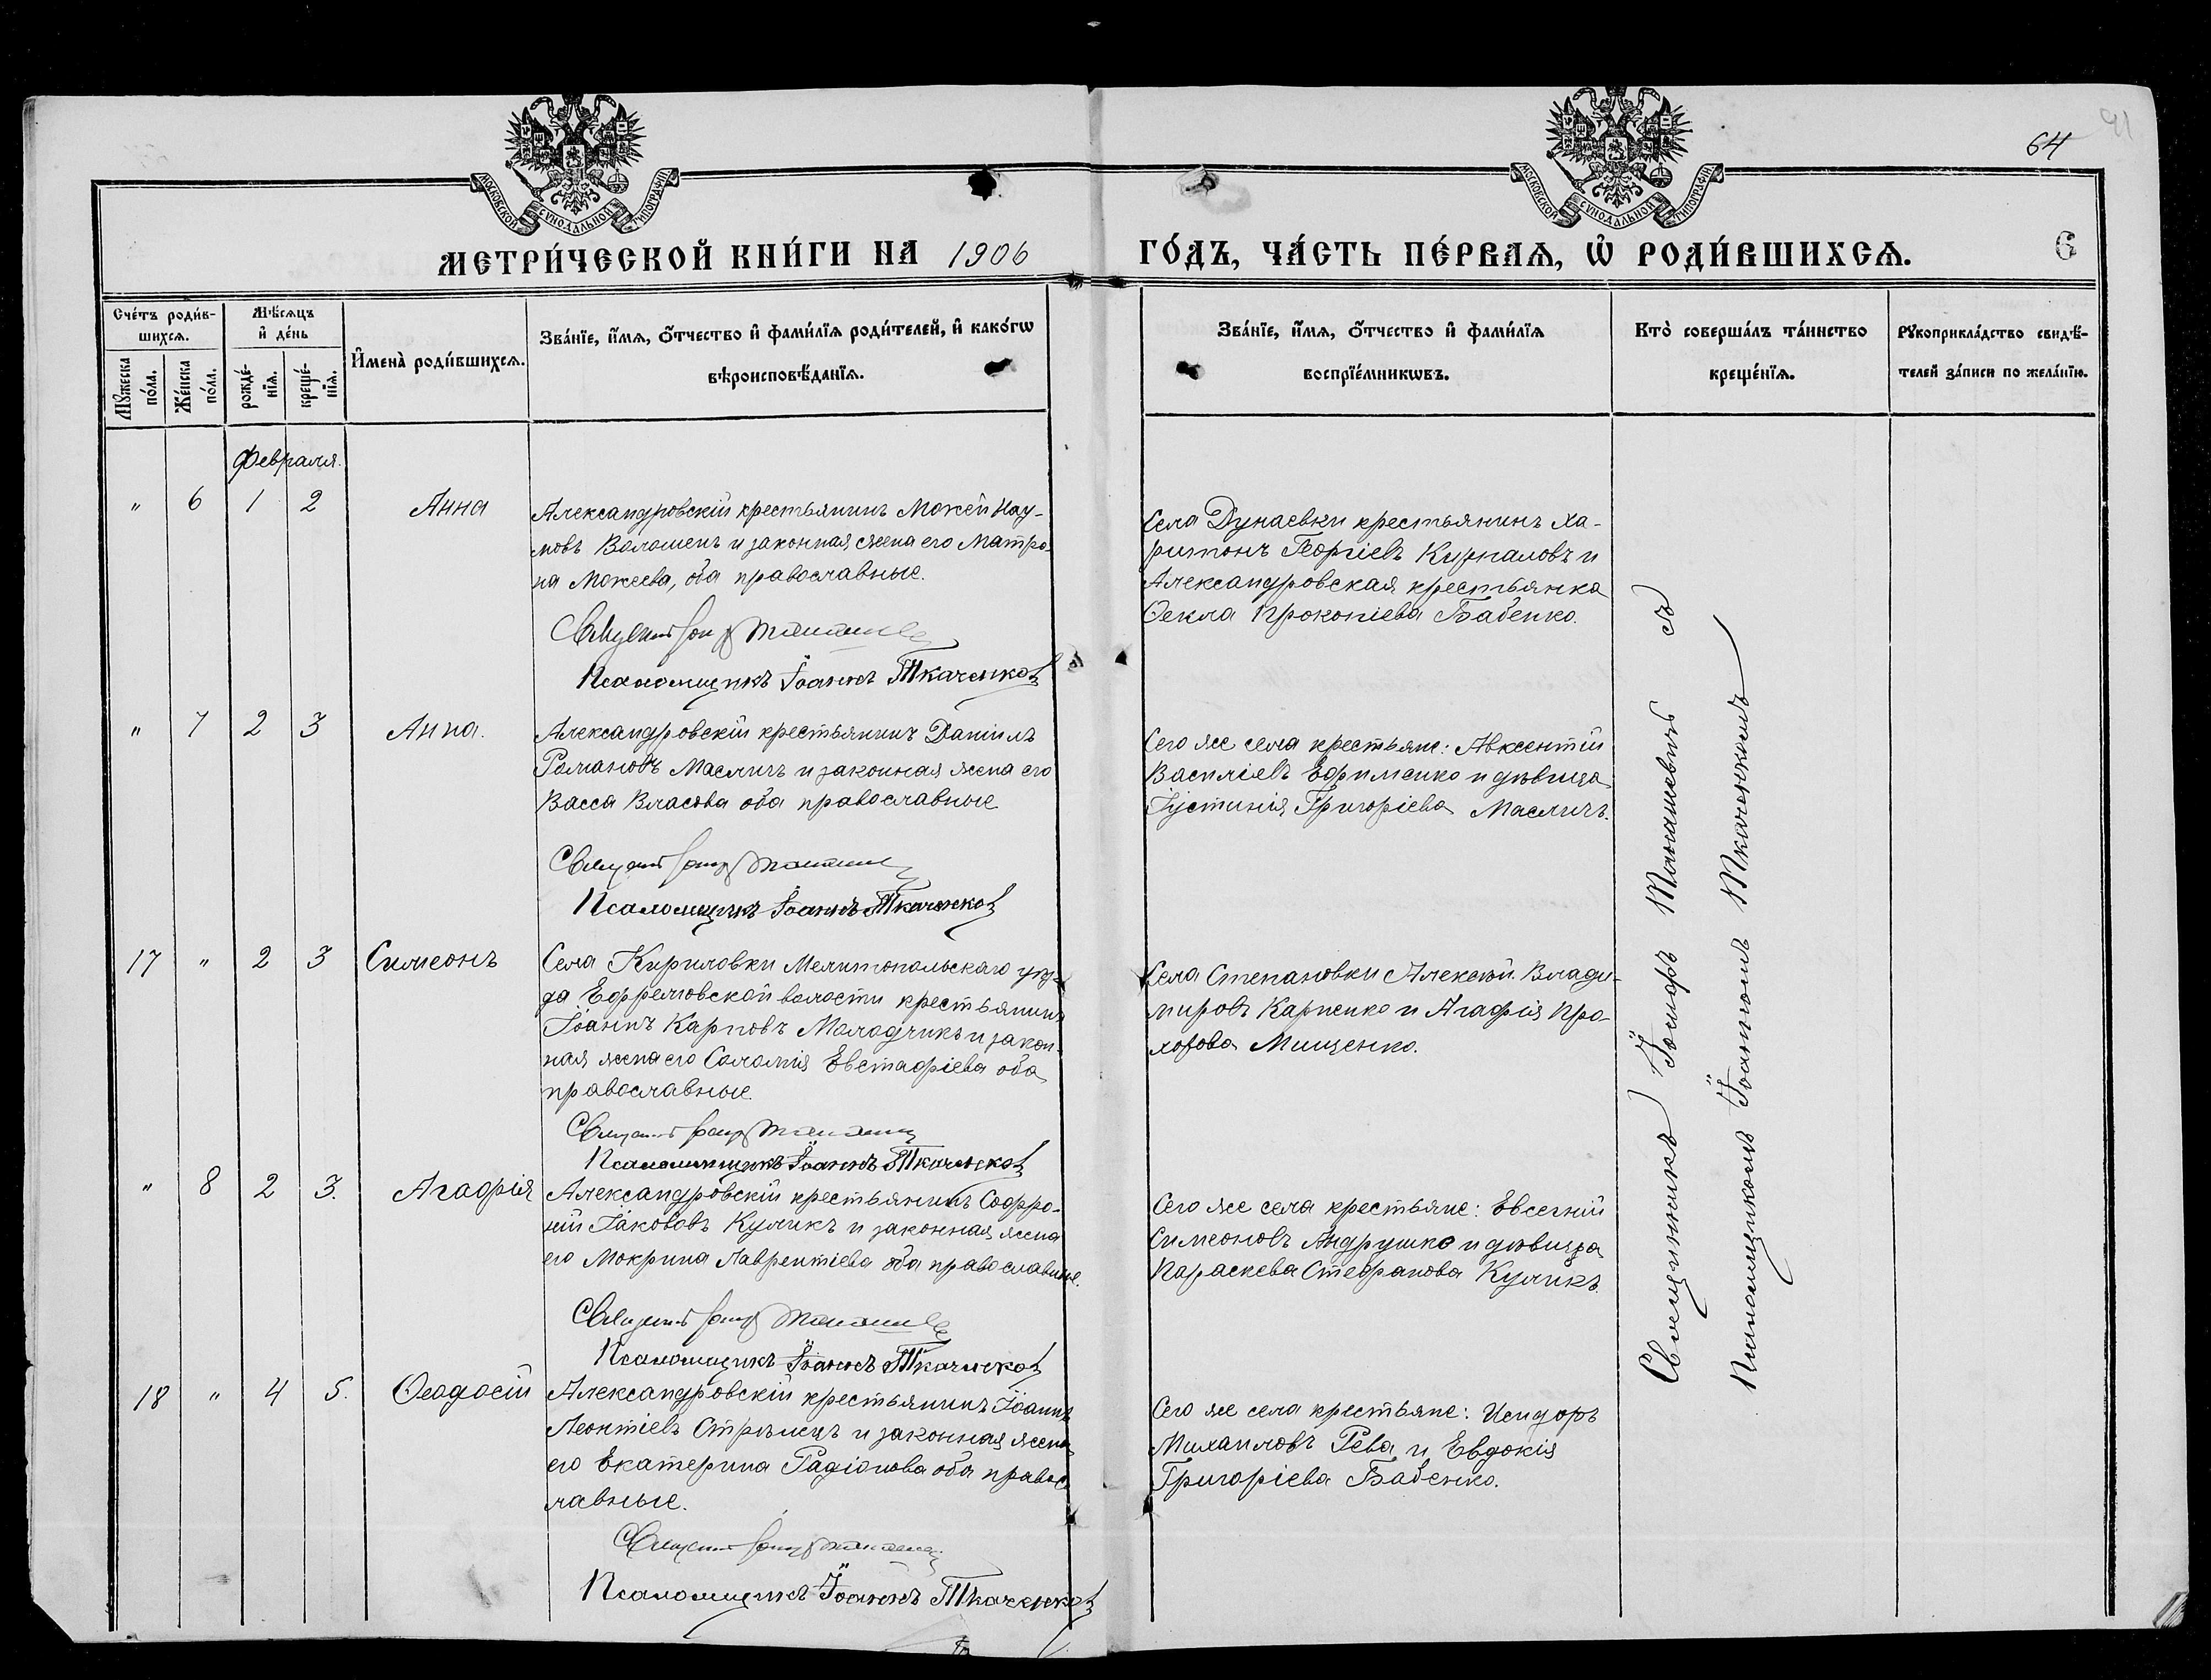 64
91
МОСКОВСКОЙ СУНОДАЛЬНОЙ ТИПОГРАФІИ
МОСКОВСКОЙ СУНОДАЛЬНОЙ ТИПОГРАФІИ
МЕТРИ́ЧЕСКОЙ КНИ́ГИ НА 1906 ГО́ДЪ, ЧА́СТЬ ПЕ́РВАѦ, Ѡ҆ РОДИ́ВШИХСѦ. 6
Сче́тъ роди́в-
шихсѧ.
Мꙋ́жеска по́ла.
Же́нска по́ла.
Мѣ́сѧцъ
и҆ де́нь
рожде́-
нїѧ.
креще́-
нїѧ.
И҆мена̀ роди́вшихсѧ.
Зва́нїе, и҆́мѧ, ѻ҆́тчество и҆ фами́лїѧ роди́телей, и҆ како́гѡ
вѣроисповѣ́данїѧ.
Зва́нїе, и҆́мѧ, ѻ҆́тчество и҆ фами́лїѧ
воспрїе́мникѡвъ.
Кто̀ соверша́лъ та́инство
креще́нїѧ.
Рꙋкоприкла́дство свидѣ́-
телей за́писи по жела́нїю.
Февраля.
" 6 1 2 Анна
Александровскій крестьянинъ Мокей Нау-
мовъ Волошенъ и законная жена его Матро-
на Мокеева, оба православные.
Псаломщикъ Іоаннъ Ткаченко
Села Дунаевки крестьянинъ Ха-
ритонъ Георгіевъ Курпаловъ и
Александровская крестьянка
Ѳекла Прокопіева Бабенко.
" 7 2 3 Анна.
Александровскій крестьянинъ Даніилъ
Романовъ Масличъ и законная жена его
Васса Власова оба православные
Псаломщикъ Іоаннъ Ткаченко
Сего же села крестьяне: Авксентій
Василіевъ Ефрименко и дѣвица
Іустинія Григоріева Масличъ.
17 " 2 3 Симеонъ
Села Кириловки Мелитопольскаго уѣз-
да Ефремовской волости крестьянинъ
Іоаннъ Карповъ Молодчикъ и закон-
ная жена его Соломія Евстафіева оба
православные.
Псаломщикъ Іоаннъ Ткаченко
Села Степановки Алексѣй Влади-
міровъ Карпенко и Агафія Про-
хорова Мищенко.
" 8 2 3. Агафія
Александровскій крестьянинъ Софро-
ній Іакововъ Куликъ и законная жена
его Мокрина Лаврентіева оба православные.
Псаломщикъ Іоаннъ Ткаченко
Сего же села крестьяне: Евсегній
Симеоновъ Андрушко и дѣвица
Параскева Стефанова Куликъ.
18 " 4 5. Ѳеодосій
Александровскій крестьянинъ Іоаннъ
Леонтіевъ Стрѣлецъ и законная жена
его Екатерина Радіонова оба правос-
лавные.
Псаломщикъ Іоаннъ Ткаченко
Сего же села крестьяне: Исидоръ
Михаиловъ Рева и Евдокія
Григоріева Бабенко.
Священникъ Іосифъ Манашевичъ съ
Псаломщикомъ Іоанномъ Ткаченкомъ